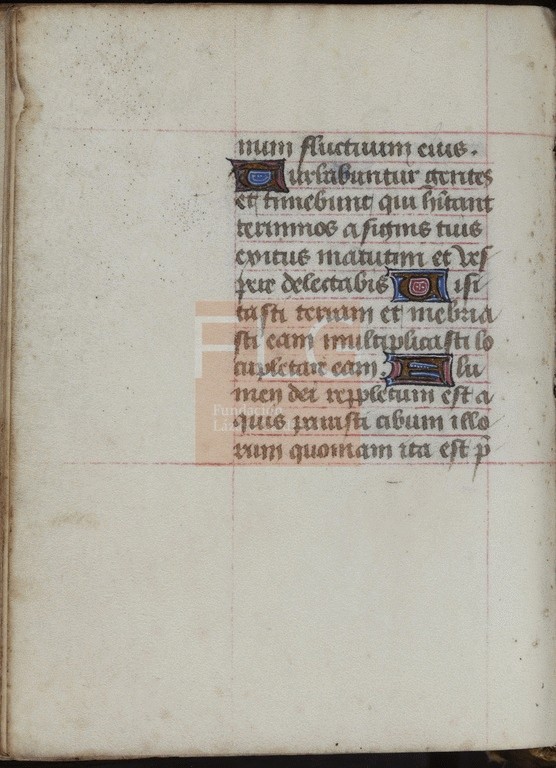 num fluctuum eius.
Turbabuntur gentes
et timebunt qui hītant
terminos a signis tuis
exitus matutini et ves
pere delectabis Visi
tasti terram et inebria
sti eam multiplicasti lo
cupletare eam. Flu
men dei repletum est a
quis parasti cibum illo
rum quoniam ita est p̄
FLG
Fundación